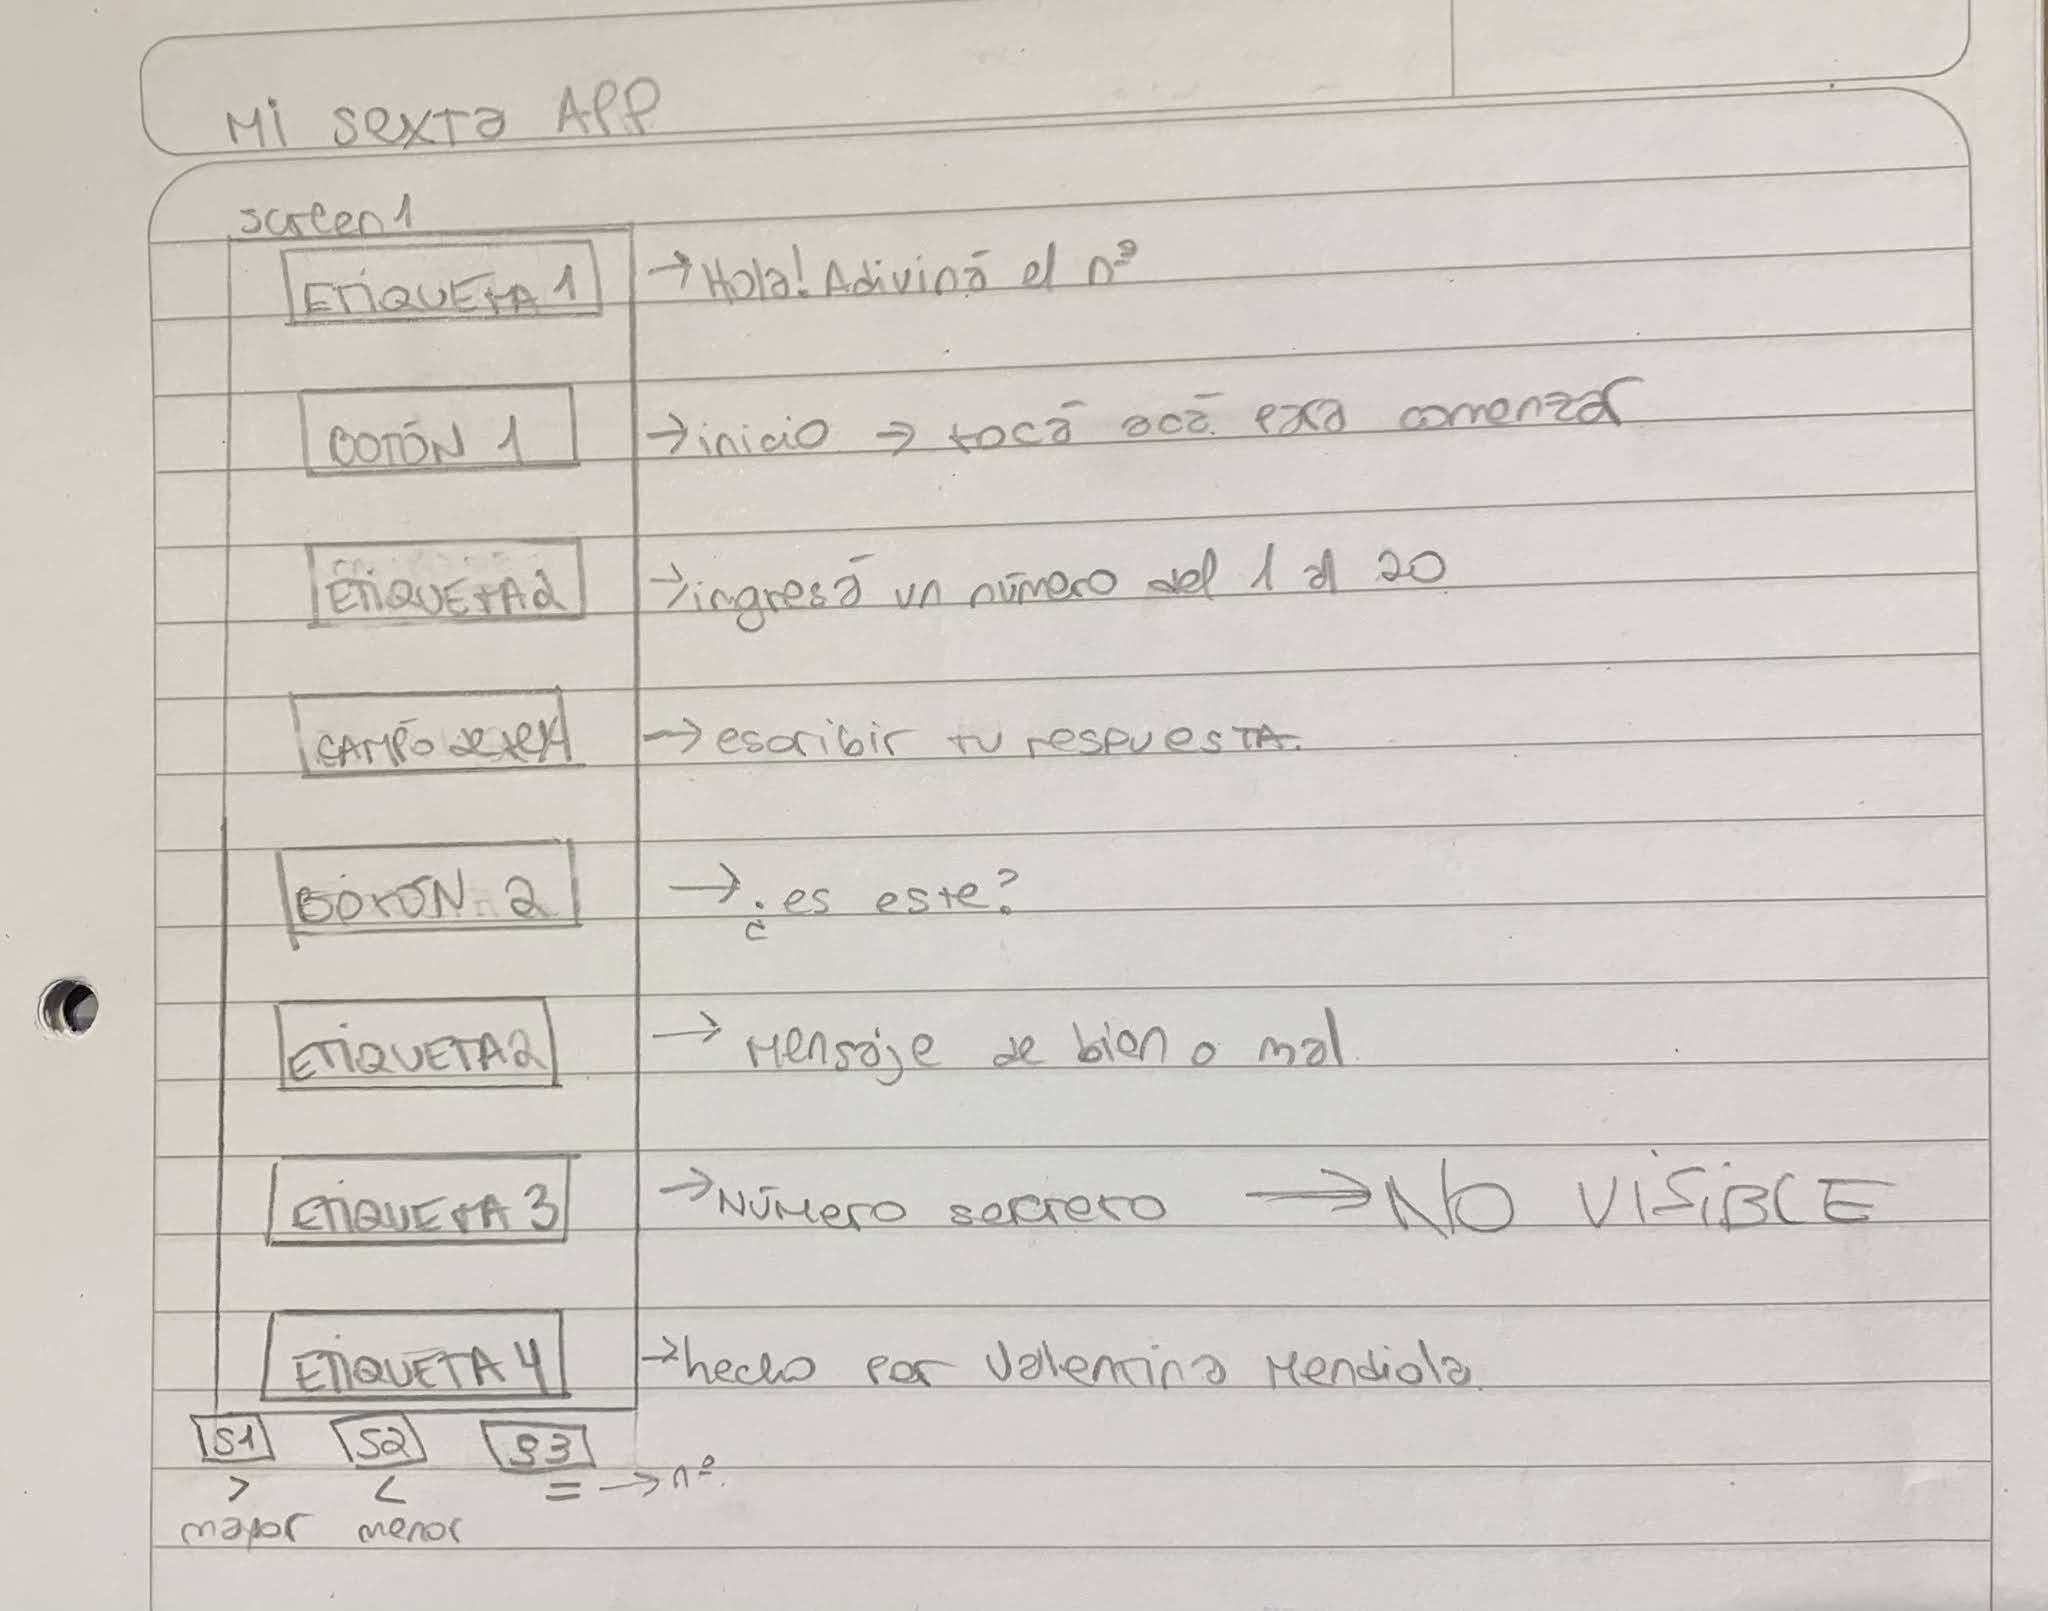 Mi sexta APP
screen1
ETIQUETA 1 → Hola! Adiviná el nº
BOTÓN 1 → inicio → tocá acá para comenzar
ETIQUETA2 → ingresá un número del 1 al 20
CAMPO de text → escribir tu respuesTA.
BOTÓN 2 → ¿es este?
ETIQUETA2 → Mensaje de bien o mal.
ETIQUETA 3 → Número secreto → NO VISIBLE
ETIQUETA 4 → hecho por Valentina Mendiola.
S1 S2 S3
> < = → nº.
mayor menor